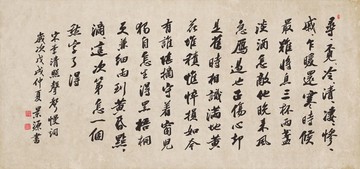 尋〻覓〻冷〻清〻凄〻慘〻
戚〻乍暖還寒時候
最難將息三杯兩盞
淡酒怎敵他晚來風
急雁過也正傷心却
是舊時相識滿地黃
花堆積憔悴損如今
有誰堪摘守着窗兒
獨自怎生得黑梧桐
更兼細雨到黃昏點〻
滴〻這次第怎一個
愁字了得
宋李清照聲聲慢詞
歲次戊戌仲夏景源書